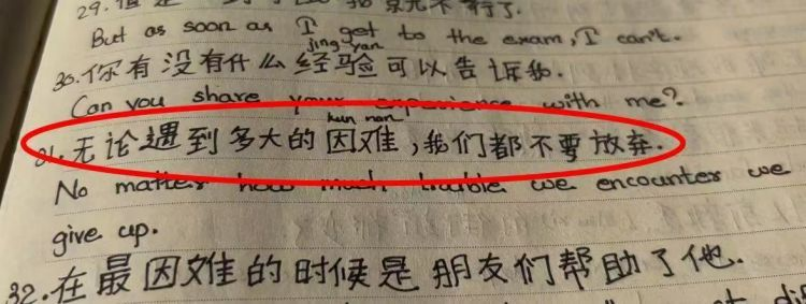 29.
But as soon as I get to the exam, I can't.
jing yan
30. 你有没有什么经验可以告诉我.
Can you share your experience with me?
kun nan
31. 无论遇到多大的因难,我们都不要放弃.
No matter how much trouble we encounter we
give up.
32. 在最因难的时候是朋友们帮助了他.